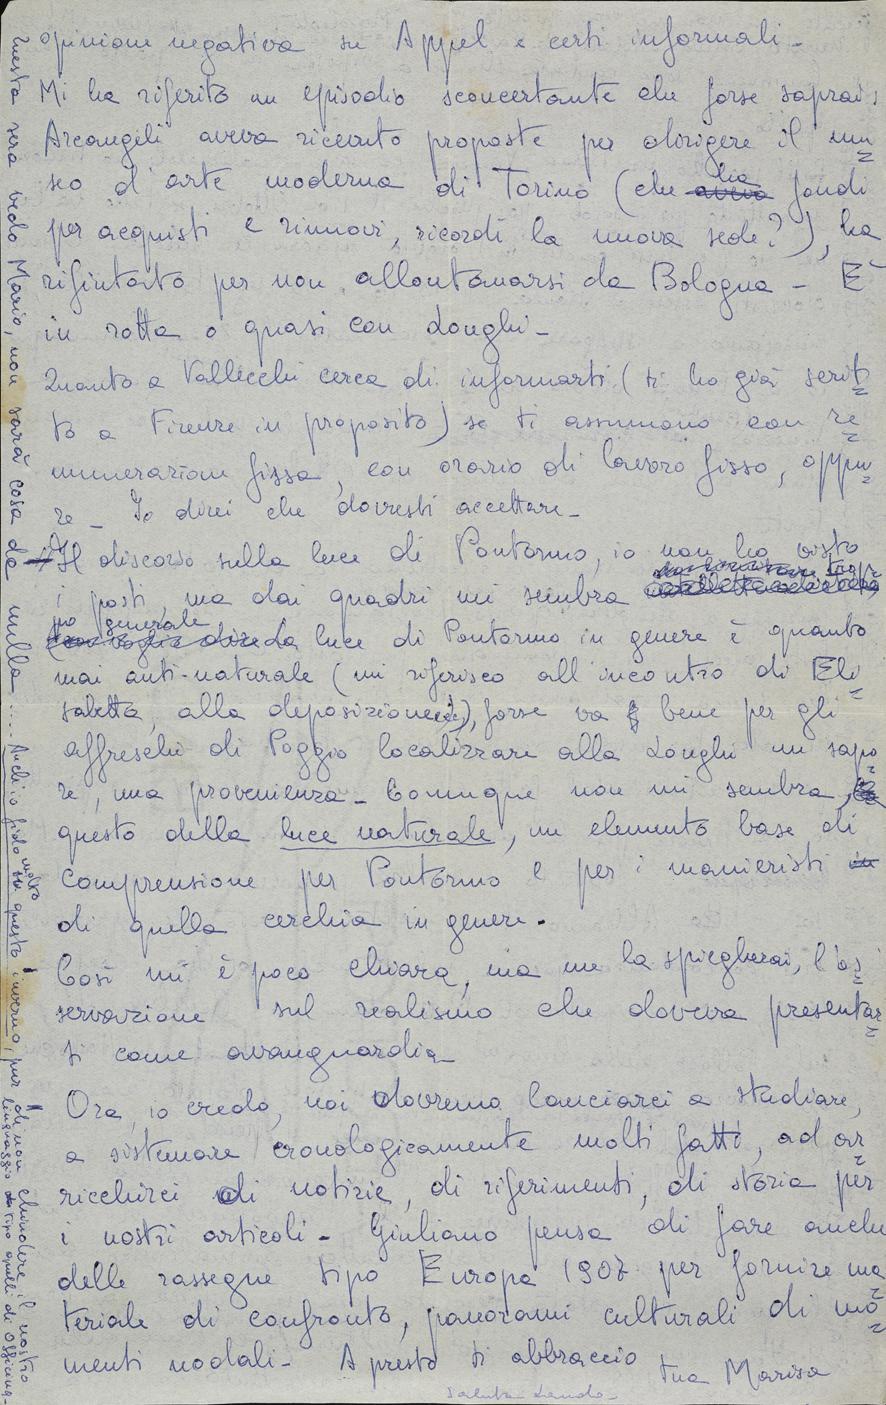 opinione negativa su Appel e certi informali -
Mi ha riferito un episodio sconcertante che forse saprai:
Arcangeli aveva ricevuto proposte per dirigere il mu=
seo d'arte moderna di Torino (che ~~aveva~~ ha fondi
per acquisti e rinnovi, ricordi la nuova sede?), ha
rifiutato per non allontanarsi da Bologna - E'
in rotta o quasi con Longhi -
Quanto a Vallecchi cerca di informarti (ti ho già scrit=
to a Firenze in proposito) se ti assumono con re=
munerazione fissa, con orario di lavoro fisso, oppu=
re - Io direi che dovresti accettare -
Il discorso sulla luce di Pontormo, io non ho visto
i posti, ma dai quadri mi sembra
po' generale
La luce di Pontormo in genere è quanto
mai anti-naturale (mi riferisco all'incontro di Eli=
sabetta, alla deposizione), forse va bene per gli
affreschi di Poggio localizzare alla Longhi un sapo=
re, una provenienza - Comunque non mi sembra,
questo della luce naturale, un elemento base di
comprensione per Pontormo e per i manieristi ~~in~~
di quella cerchia in genere.
Così mi è poco chiara, ma me la spiegherai, l'os=
servazione sul realismo che doveva presentar=
si come avanguardia -
Ora, io credo, noi dovremo lanciarci a studiare,
a sistemare cronologicamente molti fatti, ad ar=
ricchirci di notizie, di riferimenti, di storia per
i nostri articoli - Giuliano pensa di fare anche
delle rassegne tipo Europa 1907 per fornire ma=
teriale di confronto, panorami culturali di mo=
menti nodali - A presto ti abbraccio tua Marisa
saluta Lando -
Questa sera vedo Mario, non sarà cosa da nulla .... Anch'io fido molto su questo inverno, pur di non chiudere il nostro
linguaggio tipo quelli di Officina -